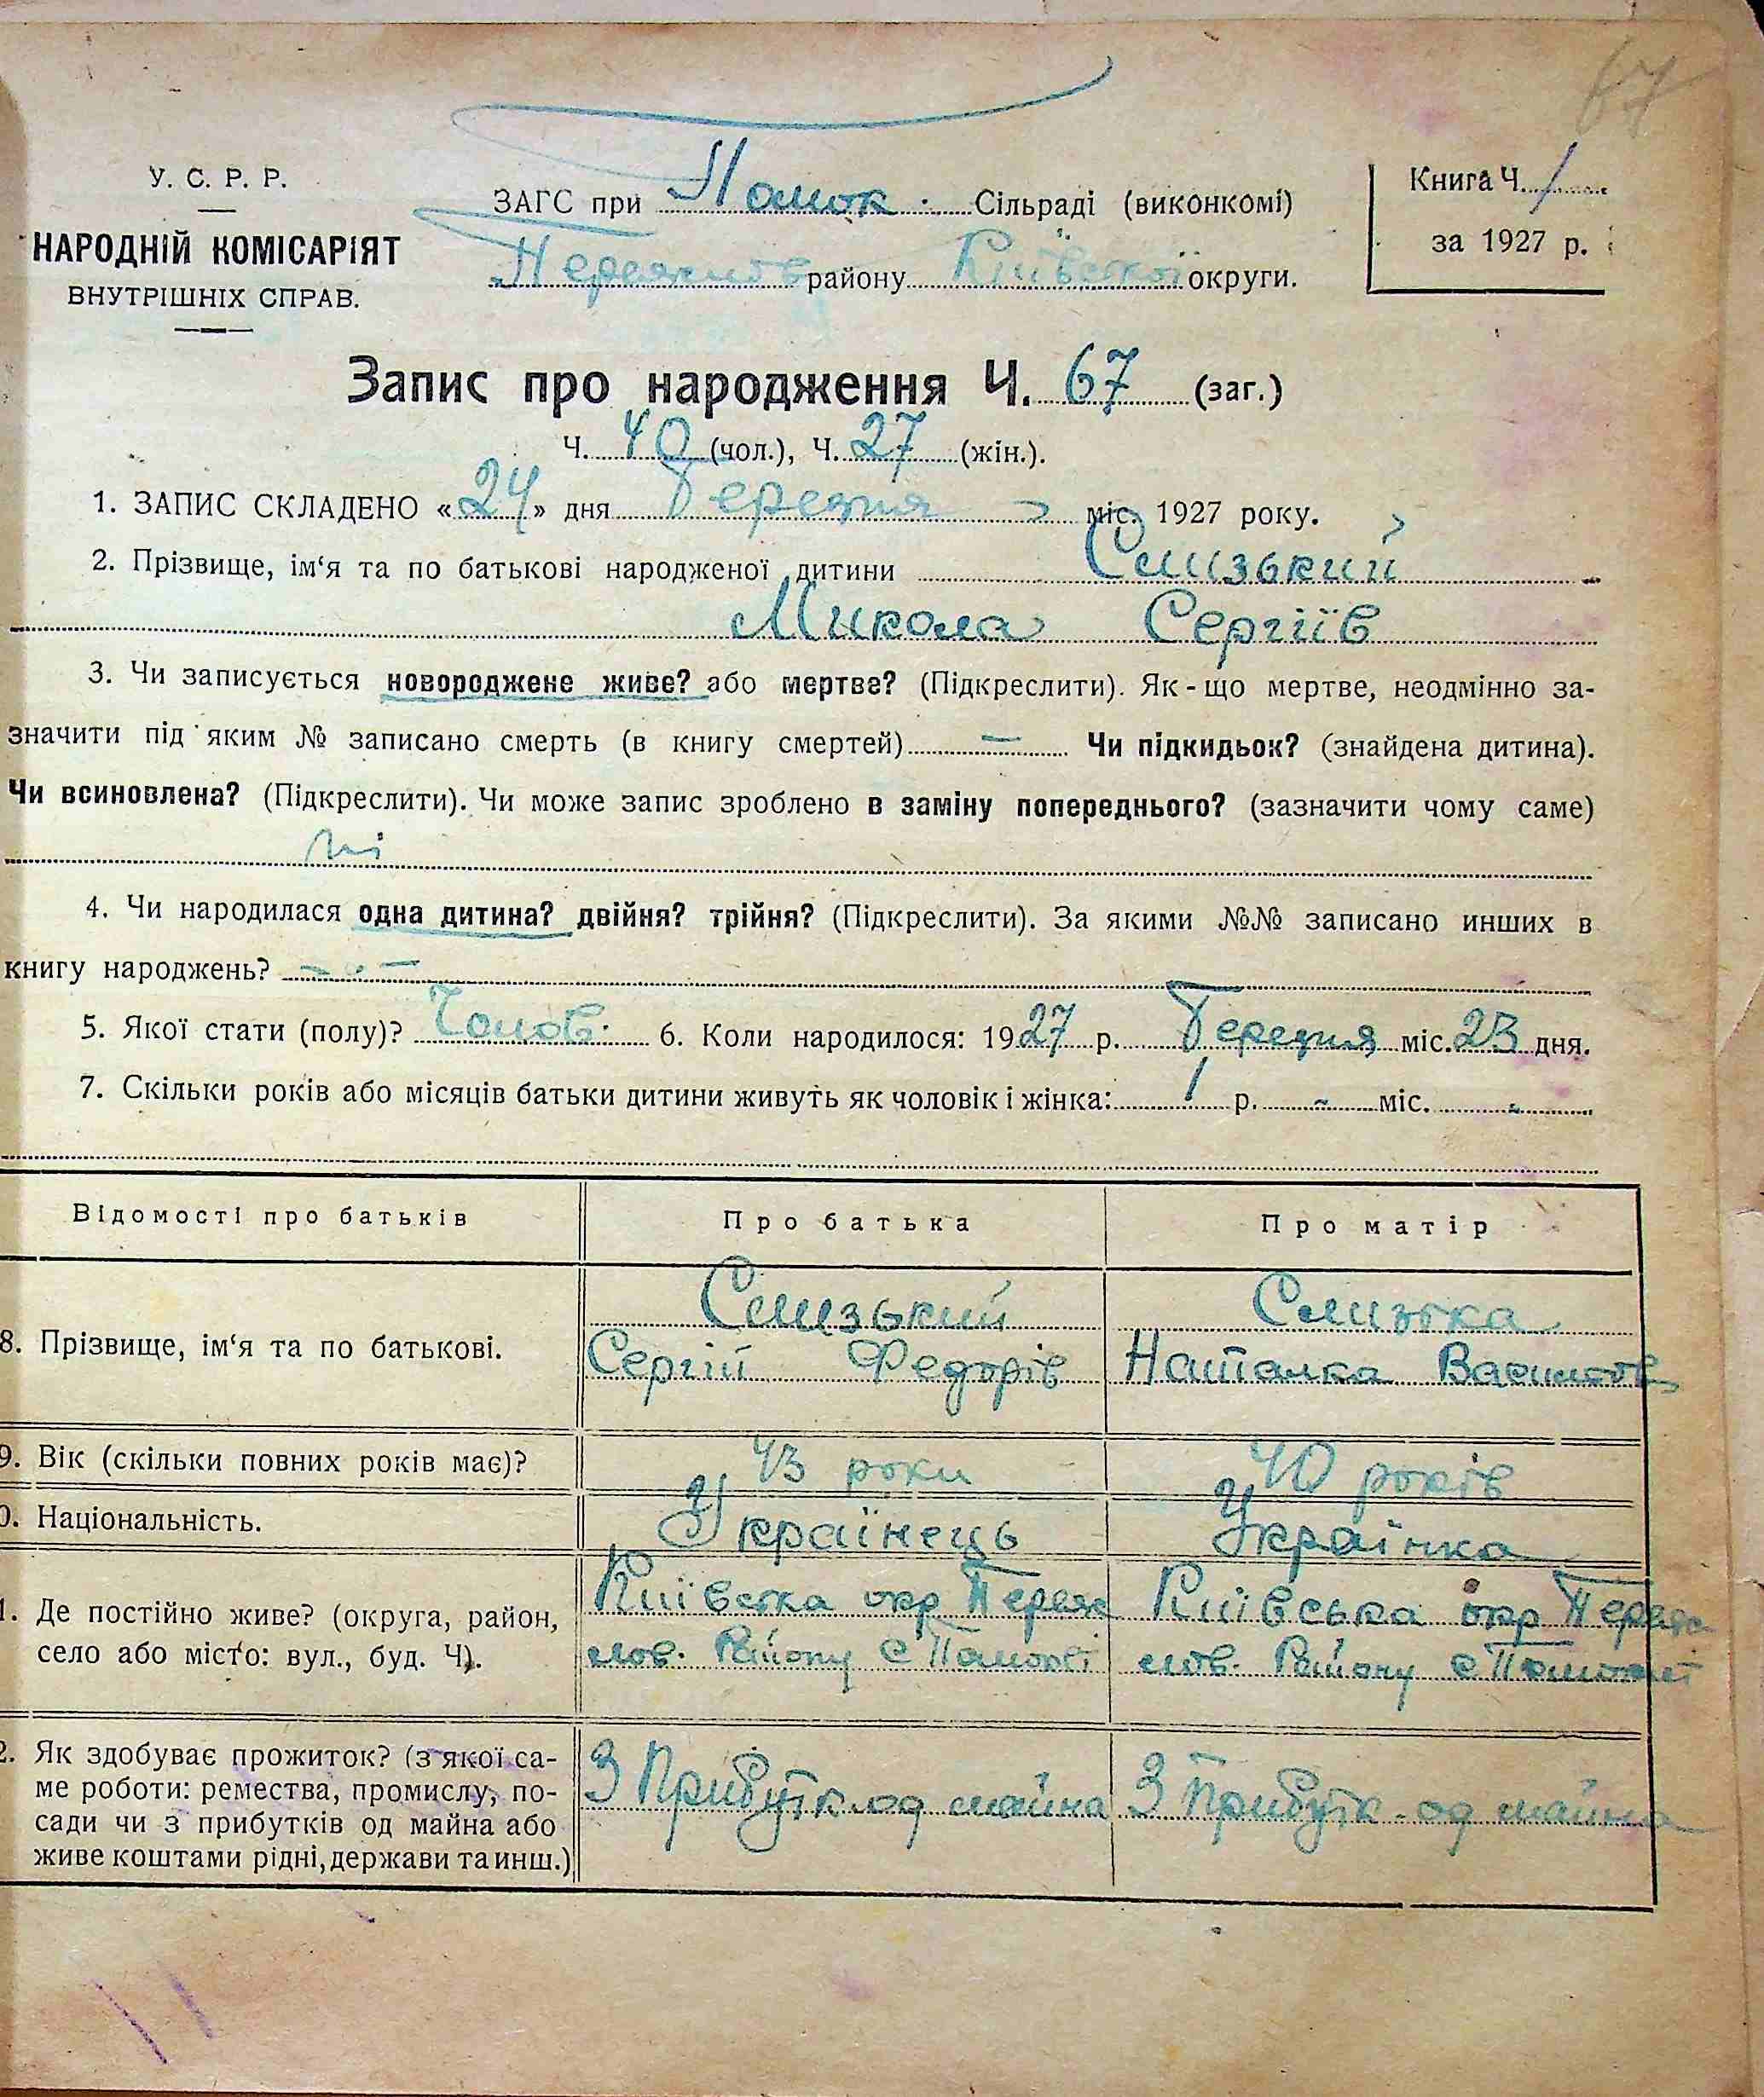 67
У. С. Р. Р.
НАРОДНІЙ КОМІСАРІЯТ
ВНУТРІШНІХ СПРАВ.
ЗАГС при Помок. Сільраді (виконкомі)
району Київської округи.
Книга Ч. 1
за 1927 р.
Запис про народження Ч. 67 (заг.)
Ч. 40 (чол.), Ч. 27 (жін.).
1. ЗАПИС СКЛАДЕНО «24» дня Березня міс. 1927 року.
2. Прізвище, ім‘я та по батькові народженої дитини Слизький
Микола Сергіїв
3. Чи записується новороджене живе? або мертве? (Підкреслити). Як-що мертве, неодмінно за-
значити під яким № записано смерть (в книгу смертей) — Чи підкидьок? (знайдена дитина).
Чи всиновлена? (Підкреслити). Чи може запис зроблено в заміну попереднього? (зазначити чому саме)
ні
4. Чи народилася одна дитина? двійня? трійня? (Підкреслити). За якими №№ записано инших в
книгу народжень? —
5. Якої стати (полу)? Чолов. 6. Коли народилося: 1927 р. Березня міс. 23 дня.
7. Скільки років або місяців батьки дитини живуть як чоловік і жінка: 1 р. - міс. -
Відомості про батьків Про батька Про матір
8. Прізвище, ім‘я та по батькові. Слизький Слизька
Сергій Федорів Наталка Василів
9. Вік (скільки повних років має)? 43 роки 40 років
0. Національність. Українець Українка
1. Де постійно живе? (округа, район, Київська окр Переяс Київська окр Перея
село або місто: вул., буд. Ч). лов. Району с Помоклі слов. Району с Помоклі
2. Як здобуває прожиток? (з якої са-
ме роботи: ремества, промислу, по- З Прибутк. од майна З Прибутк. од майна
сади чи з прибутків од майна або
живе коштами рідні, держави та инш.)